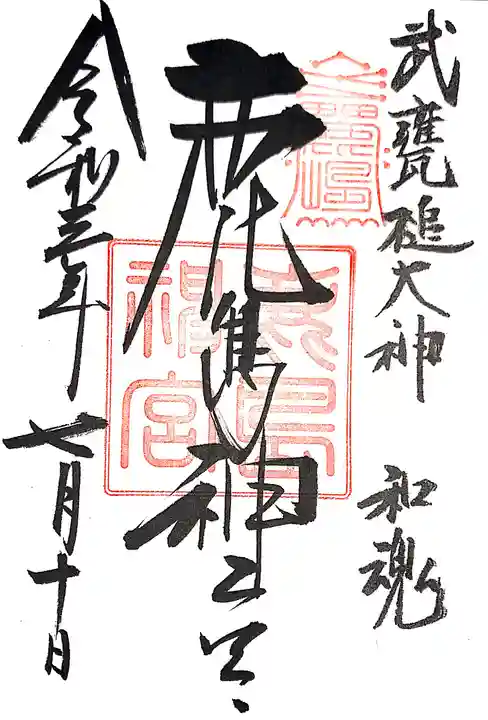 武甕槌大神 和魂
鹿島神宮
鹿島神宮
令和三年七月十日